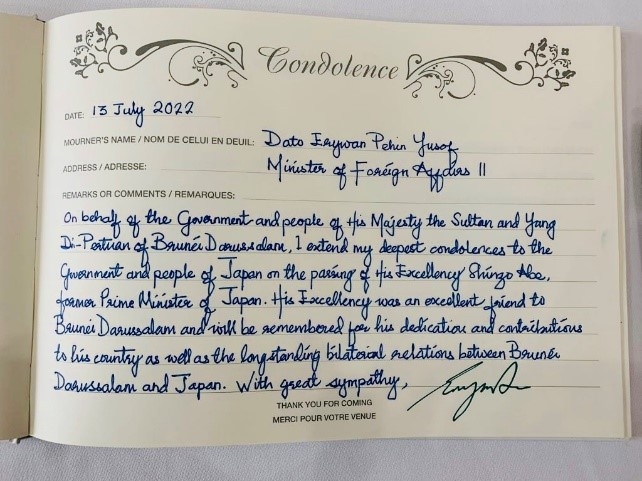 Condolence
DATE: 13 July 2022
MOURNER'S NAME / NOM DE CELUI EN DEUIL: Dato Erywan Pehin Yusof
ADDRESS / ADRESSE: Minister of Foreign Affairs II
REMARKS OR COMMENTS / REMARQUES:
On behalf of the Government and people of His Majesty the Sultan and Yang
Di-Pertuan of Brunei Darussalam, I extend my deepest condolences to the
Government and people of Japan on the passing of His Excellency Shinzo Abe,
former Prime Minister of Japan. His Excellency was an excellent friend to
Brunei Darussalam and will be remembered for his dedication and contributions
to his country as well as the longstanding bilateral relations between Brunei
Darussalam and Japan. With great sympathy,
THANK YOU FOR COMING
MERCI POUR VOTRE VENUE